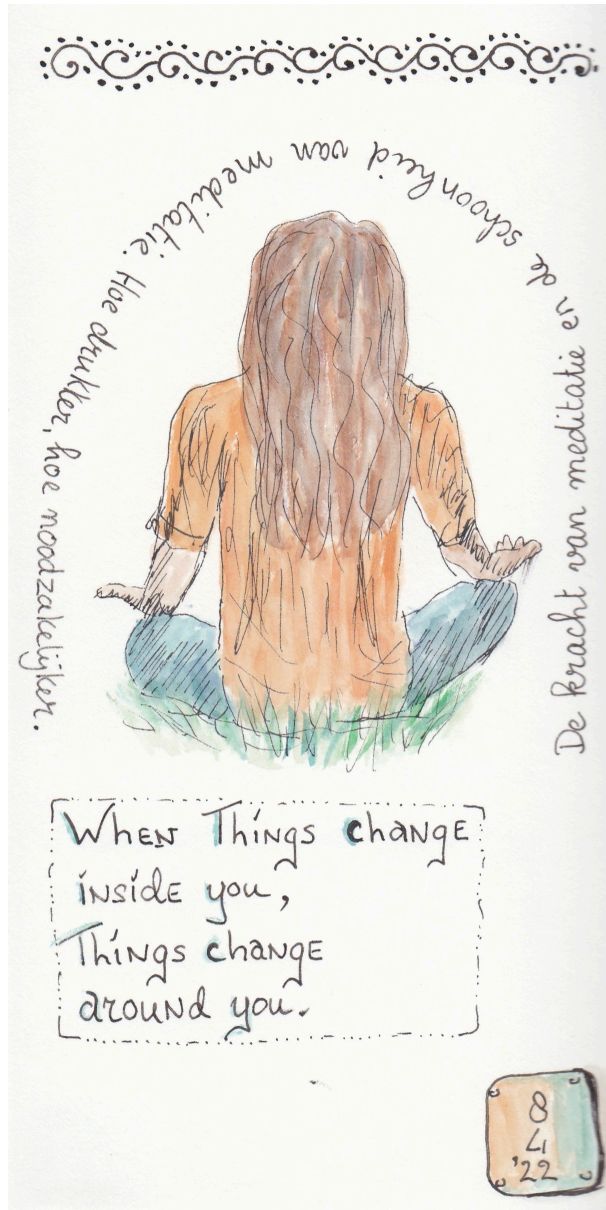 De kracht van meditatie en de schoonheid van meditatie. Hoe drukker, hoe noodzakelijker.
When Things change
inside you,
Things change
around you.
8
4
'22